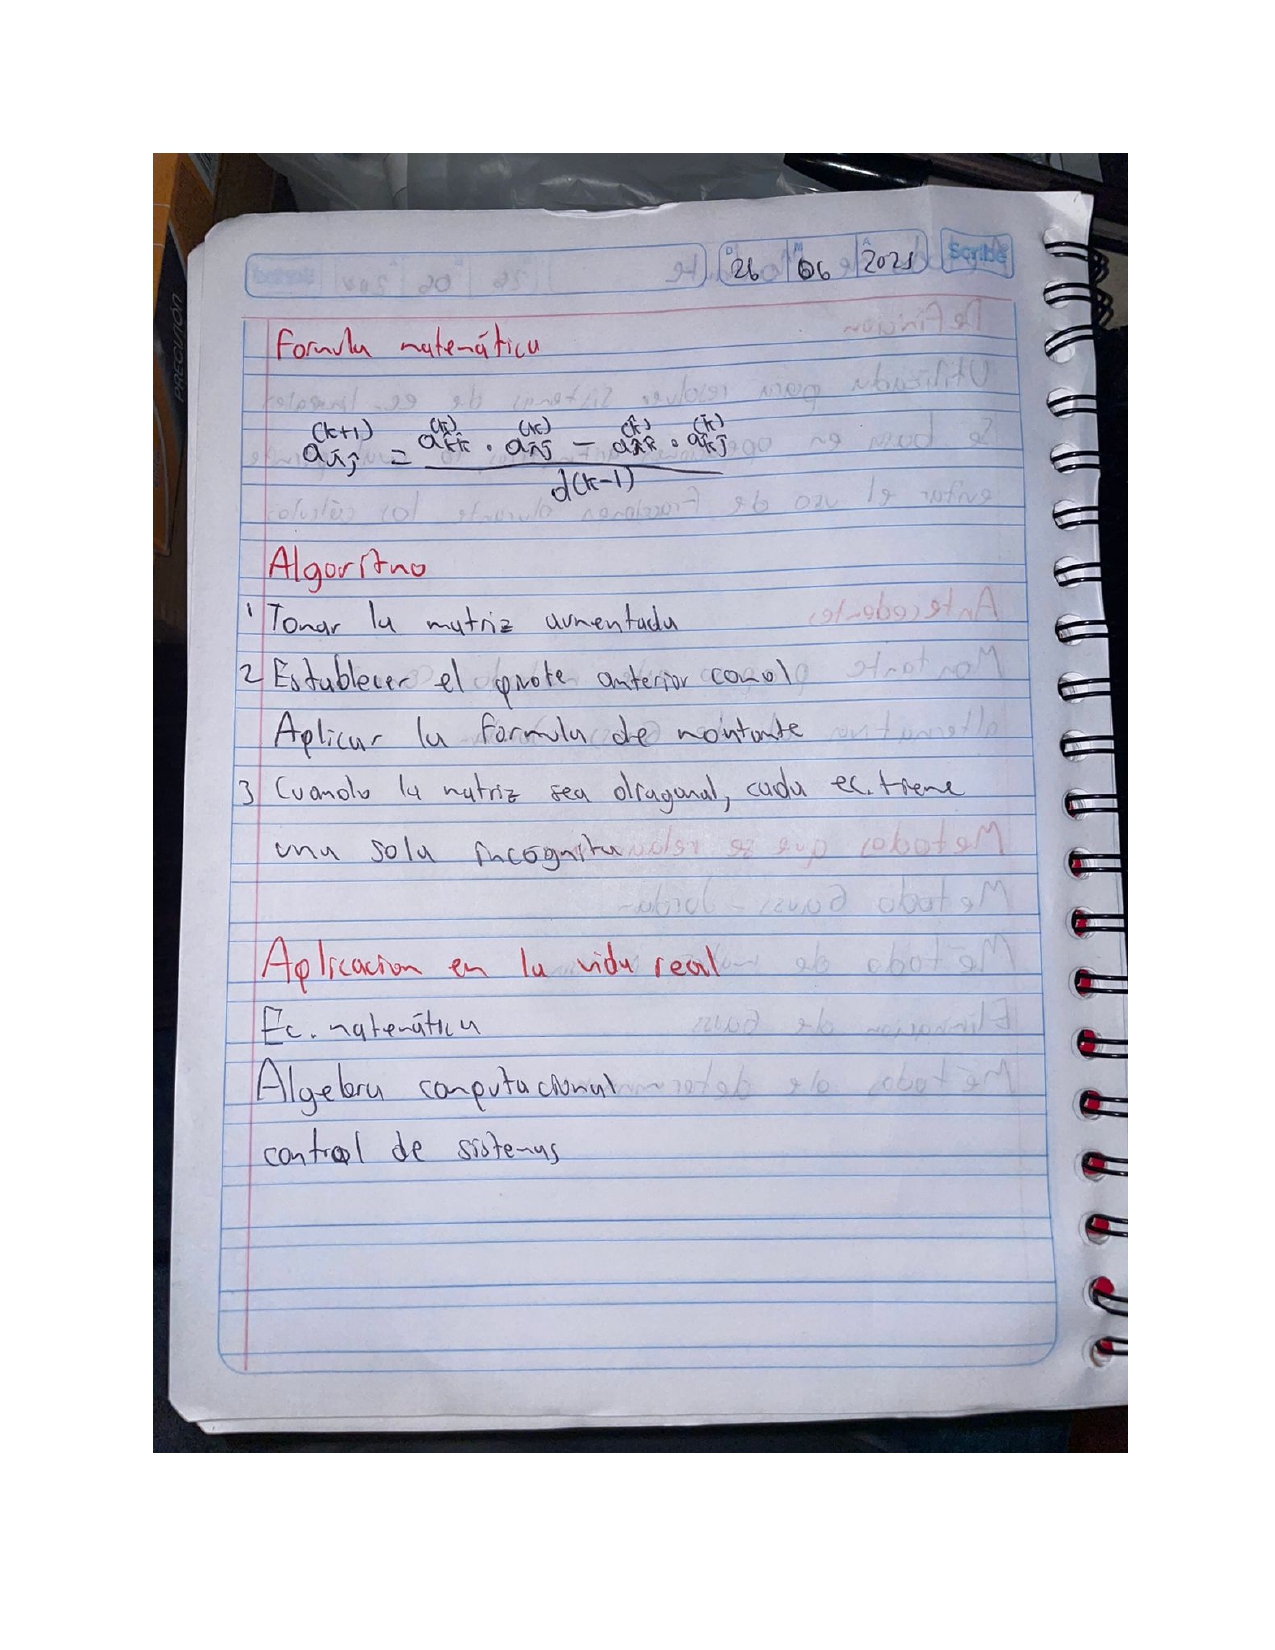 26 06 2025 Scribe
Formula matemática
a_ij^(k+1) = (a_kk^(k) · a_ij^(k) - a_ik^(k) · a_kj^(k)) / d(k-1)
Algorítmo
1 Tomar la matriz aumentada
2 Establecer el pivote anterior como 1
Aplicar la formula de montante
3 Cuando la matriz sea diagonal, cada ec. tiene
una sola incognita
Aplicacion en la vida real
Ec. matemática
Algebra computacional
control de sistemas
PRECUTION